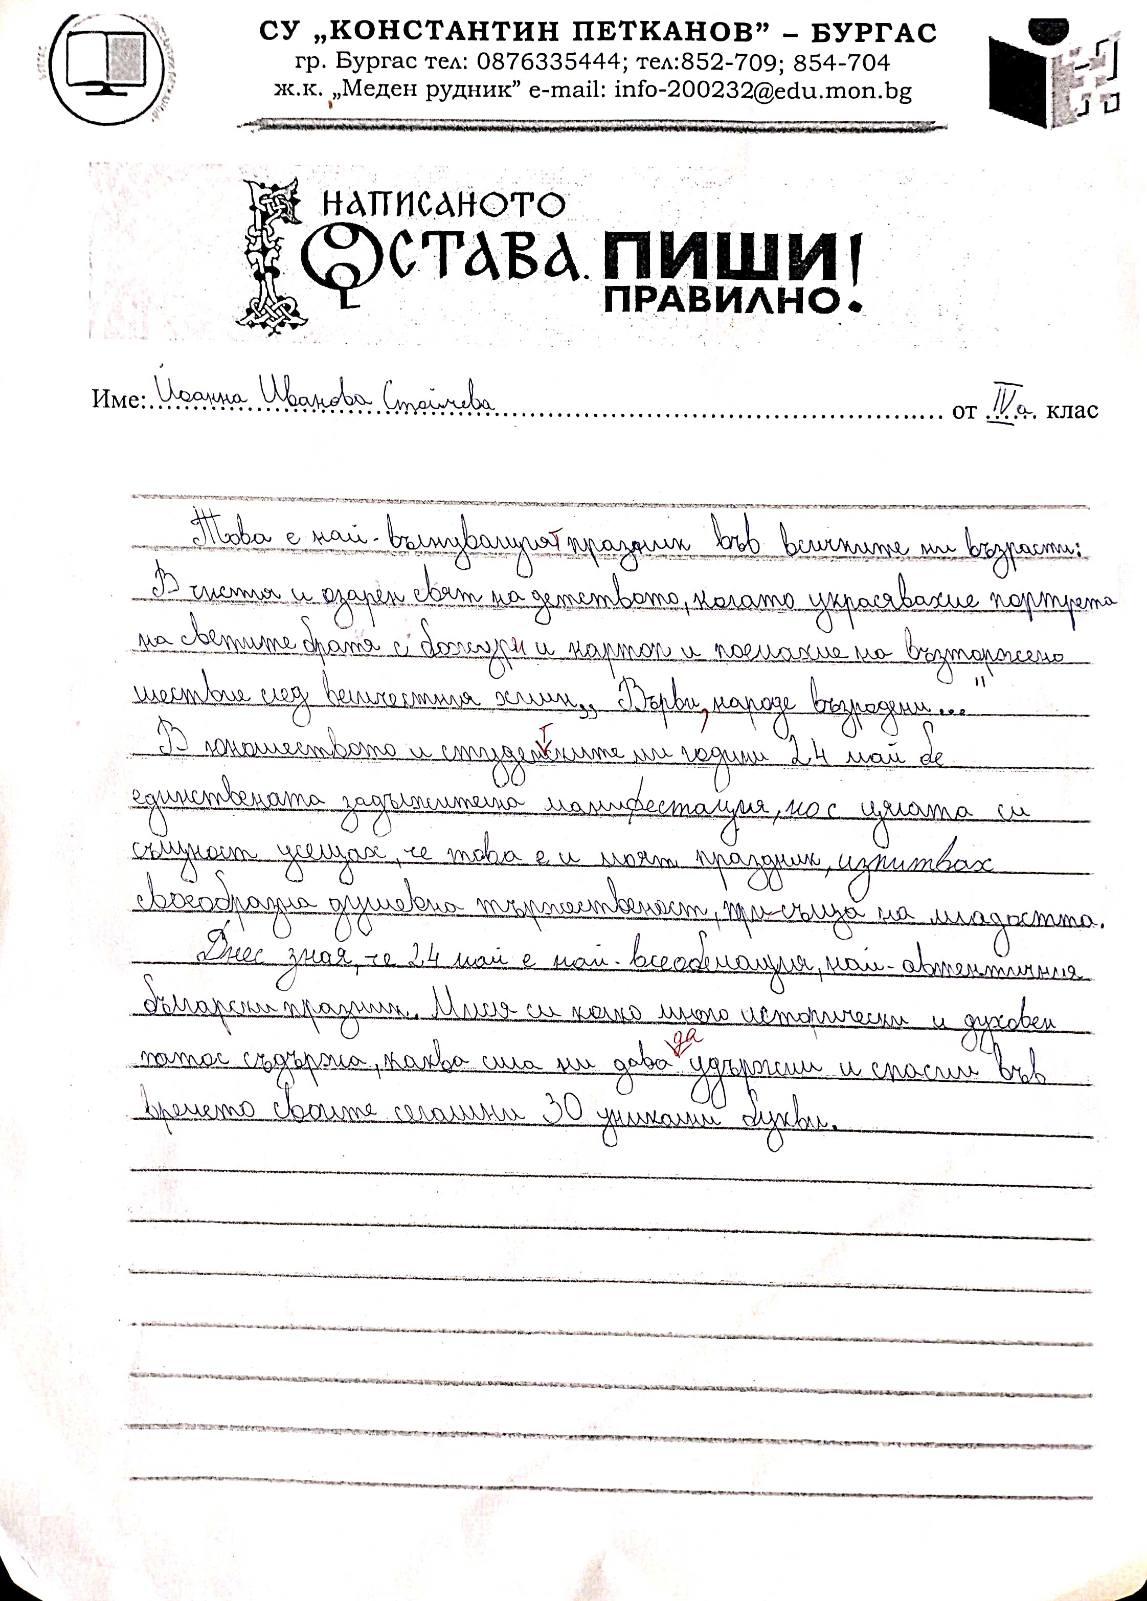 СУ „КОНСТАНТИН ПЕТКАНОВ” – БУРГАС
гр. Бургас тел: 0876335444; тел:852-709; 854-704
ж.к. „Меден рудник” e-mail: info-200232@edu.mon.bg
НАПИСАНОТО
ОСТАВА. ПИШИ
ПРАВИЛНО!
Име: Йоанна Иванова Стойчева от IV а клас
Това е най-вълнуващият празник във всичките ни възрасти:
В чистия и озарен свят на детството, когато украсявахме портрета
на светите братя с божури и картон и поемахме на възторжено
шествие след величествия химн „Върви, народе възродени..."
В юношеството и студентските ми години 24 май бе
единствената задължителна манифестация, но с цялата си
същност усещах, че това е и моят празник, изпитвах
своеобразна душевна тържественост, присъща на младостта.
Днес зная, че 24 май е най-всеобемащия, най-автентичния
български празник. Мисля си колко много исторически и духовен
патос съдържа, каква сила ни дава да удържим и спасим във
времето своите сегашни 30 уникални букви.